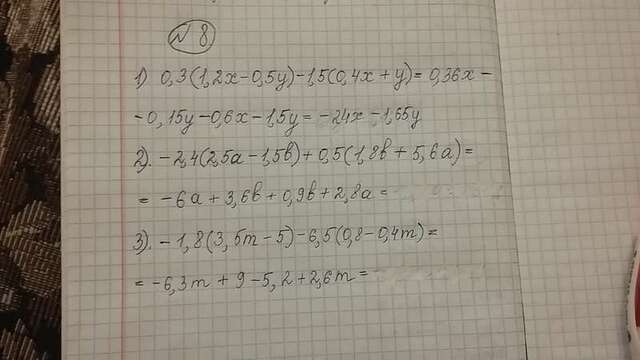 № 8
1) 0,3(1,2x-0,5y)-1,5(0,4x+y)=0,36x-
-0,15y-0,6x-1,5y=-,24x-1,65y
2). -2,4(2,5a-1,5b)+0,5(1,8b+5,6a)=
= -6a+3,6b+0,9b+2,8a=
3). -1,8(3,5m-5)-6,5(0,8-0,4m)=
= -6,3m+9-5,2+2,6m=